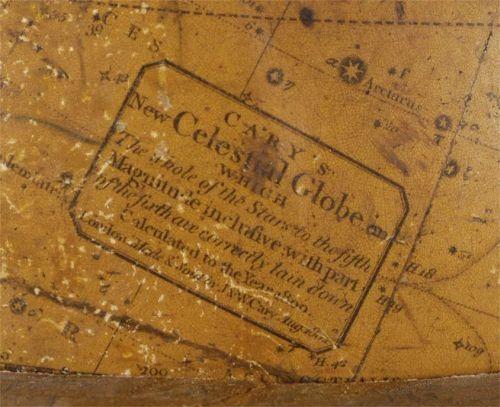 CARY'S
New Celestial Globe on
WHICH
The whole of the Stars to the fifth
Magnitude inclusive with part
of the sixth are correctly laid down
Calculated to the Year 1800
London. Made & Sold by J & W Cary
CES
39
α
Arctarus
η
H.18
H.19
H.42
109
R
200